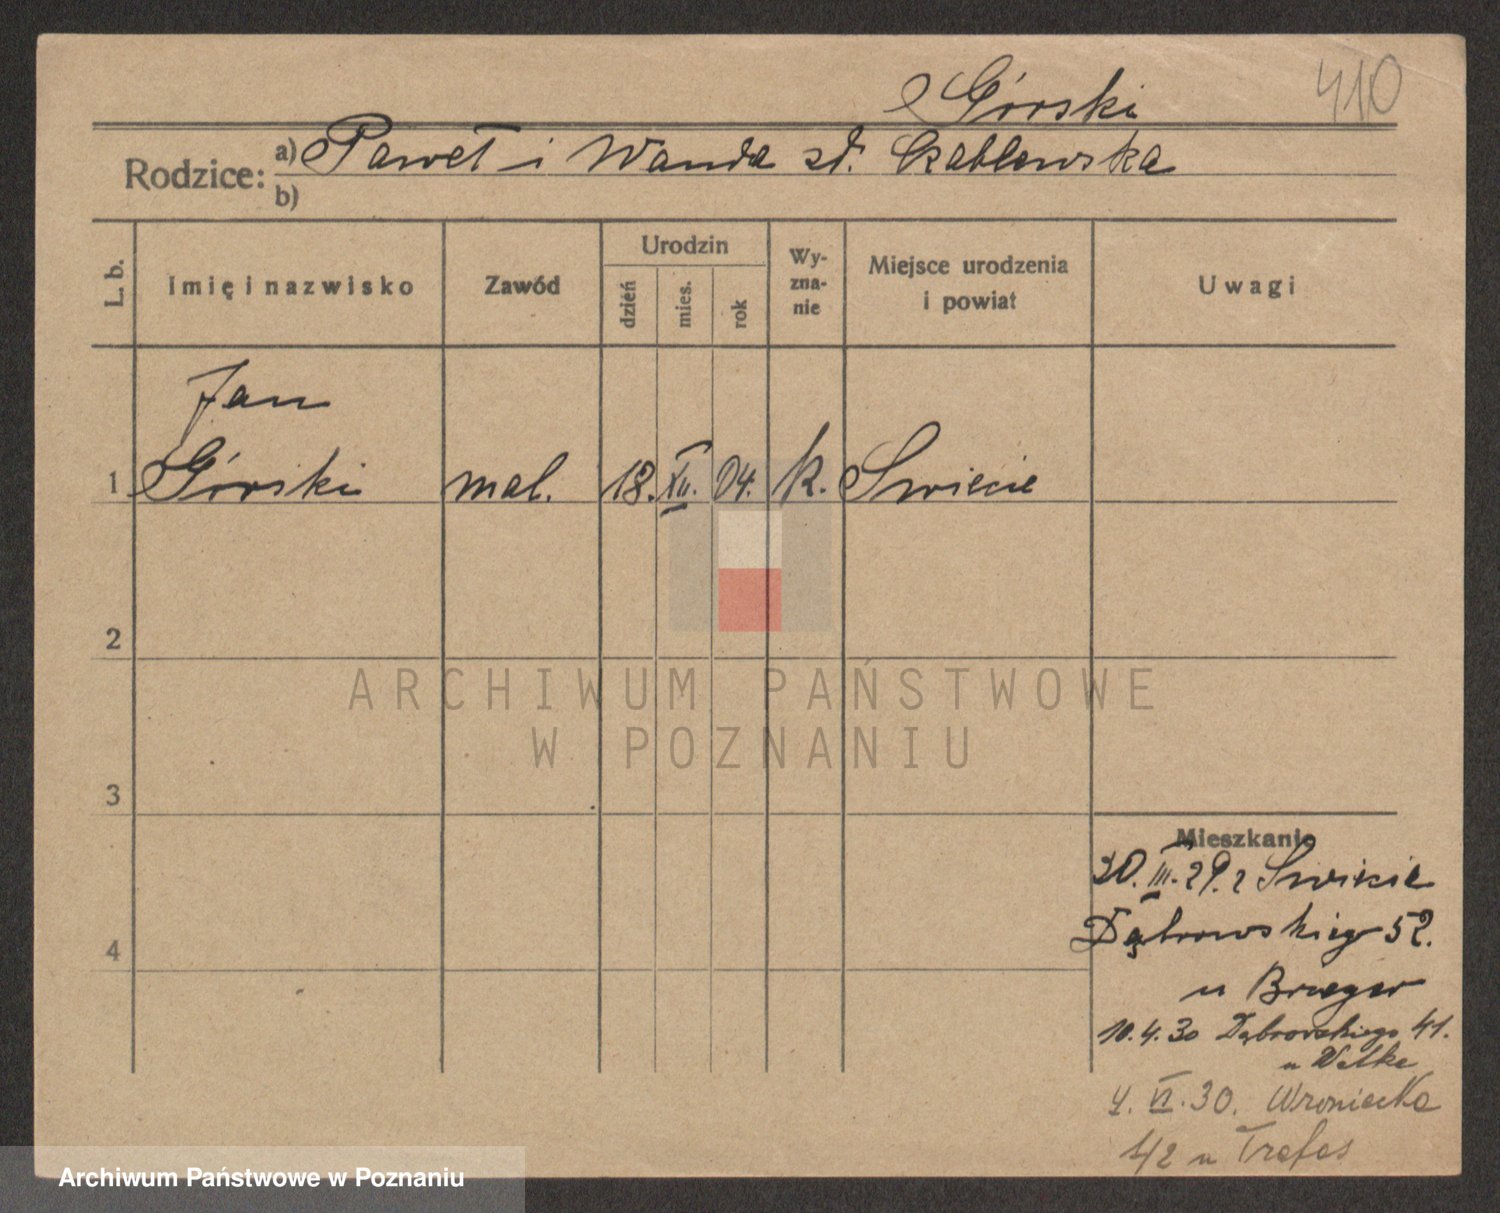 Górski
410
Rodzice: a) Paweł i Wanda zd. Czablewska
b)
L. b.
Imię i nazwisko
Zawód
Urodzin
dzień
mies.
rok
Wy-
zna-
nie
Miejsce urodzenia
i powiat
Uwagi
Jan
1 Górski mal. 18. XII. 04. k. Swiecie
2
3
4
Mieszkanie
30. III. 29. z Swiecie
Dąbrowskiego 52.
u Brzeger
10.4.30 Dąbrowskiego 41.
u Welke
4. VI. 30. Wroniecka
1/2 u Trefes
ARCHIWUM PAŃSTWOWE
W POZNANIU
Archiwum Państwowe w Poznaniu